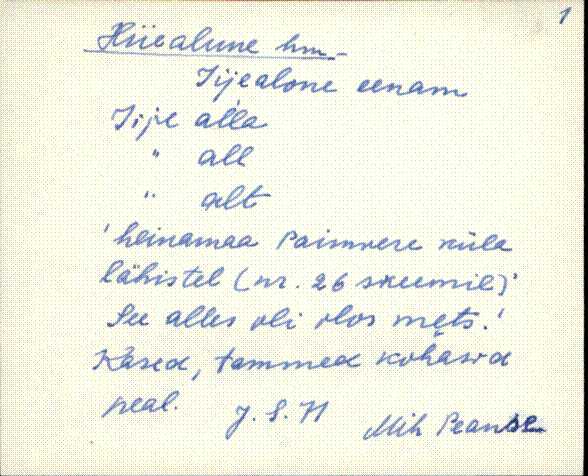 1
Hiiealune hm.
Iije alone eenam
Iije alla
" all
" alt
'heinamaa Paimvere küla
lähistel (nr. 26 skeemil)'
See alles oli olos mets.'
Kased, tammed kohasid
peal. J. S. H
Mih